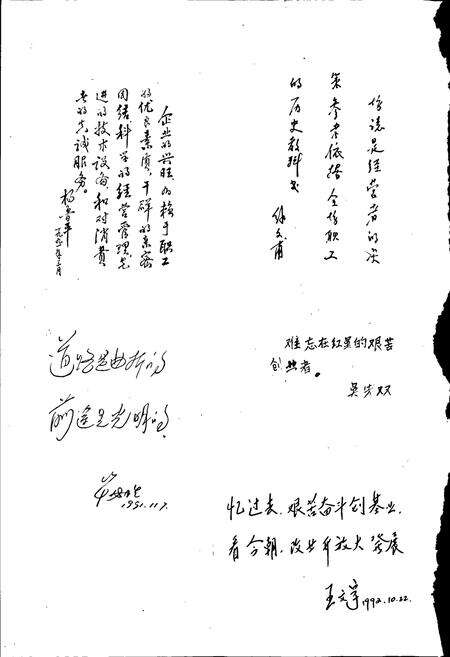 修志是经营者的决
策参考依据全体职工
的历史教科书
企业的兴旺的根于职工
的优良素质，干群的亲密
团结，科学的经营管理，先
进的技术设备，和对消费
者的忠诚服务。
道路是曲折的
前途是光明的
1991.11.7.
难忘在红星的艰苦
创业者。
吴步双
忆过去，艰苦奋斗创基业，
看今朝，改革开放大发展
王文学 1992.10.22.